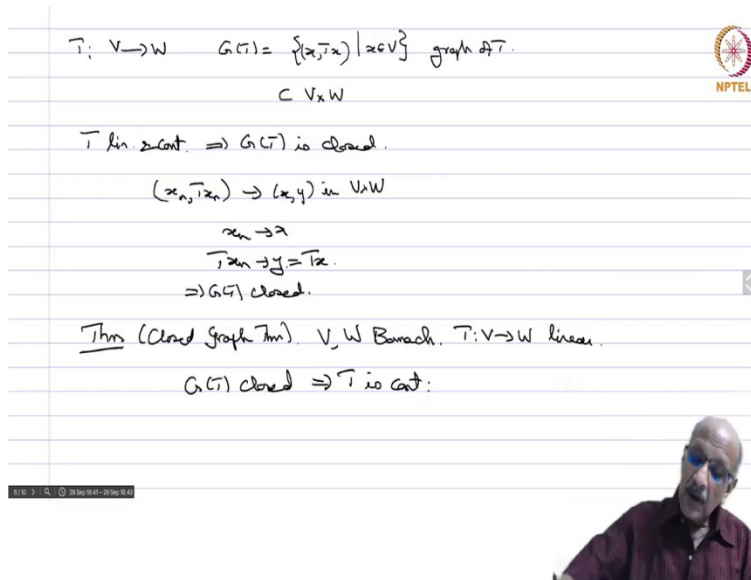 T: V→W G(T) = {(x,Tx) | x∈V} graph of T.
⊂ V×W
NPTEL
T lin. & cont. ⇒ G(T) is closed.
(xₙ,Txₙ) → (x,y) in V×W
xₙ → x
Txₙ → y = Tx.
⇒ G(T) closed.
Thm (Closed Graph Thm). V, W Banach. T: V→W linear.
G(T) closed ⇒ T is cont:
6/10 29 Sep 18:41 - 29 Sep 18:43